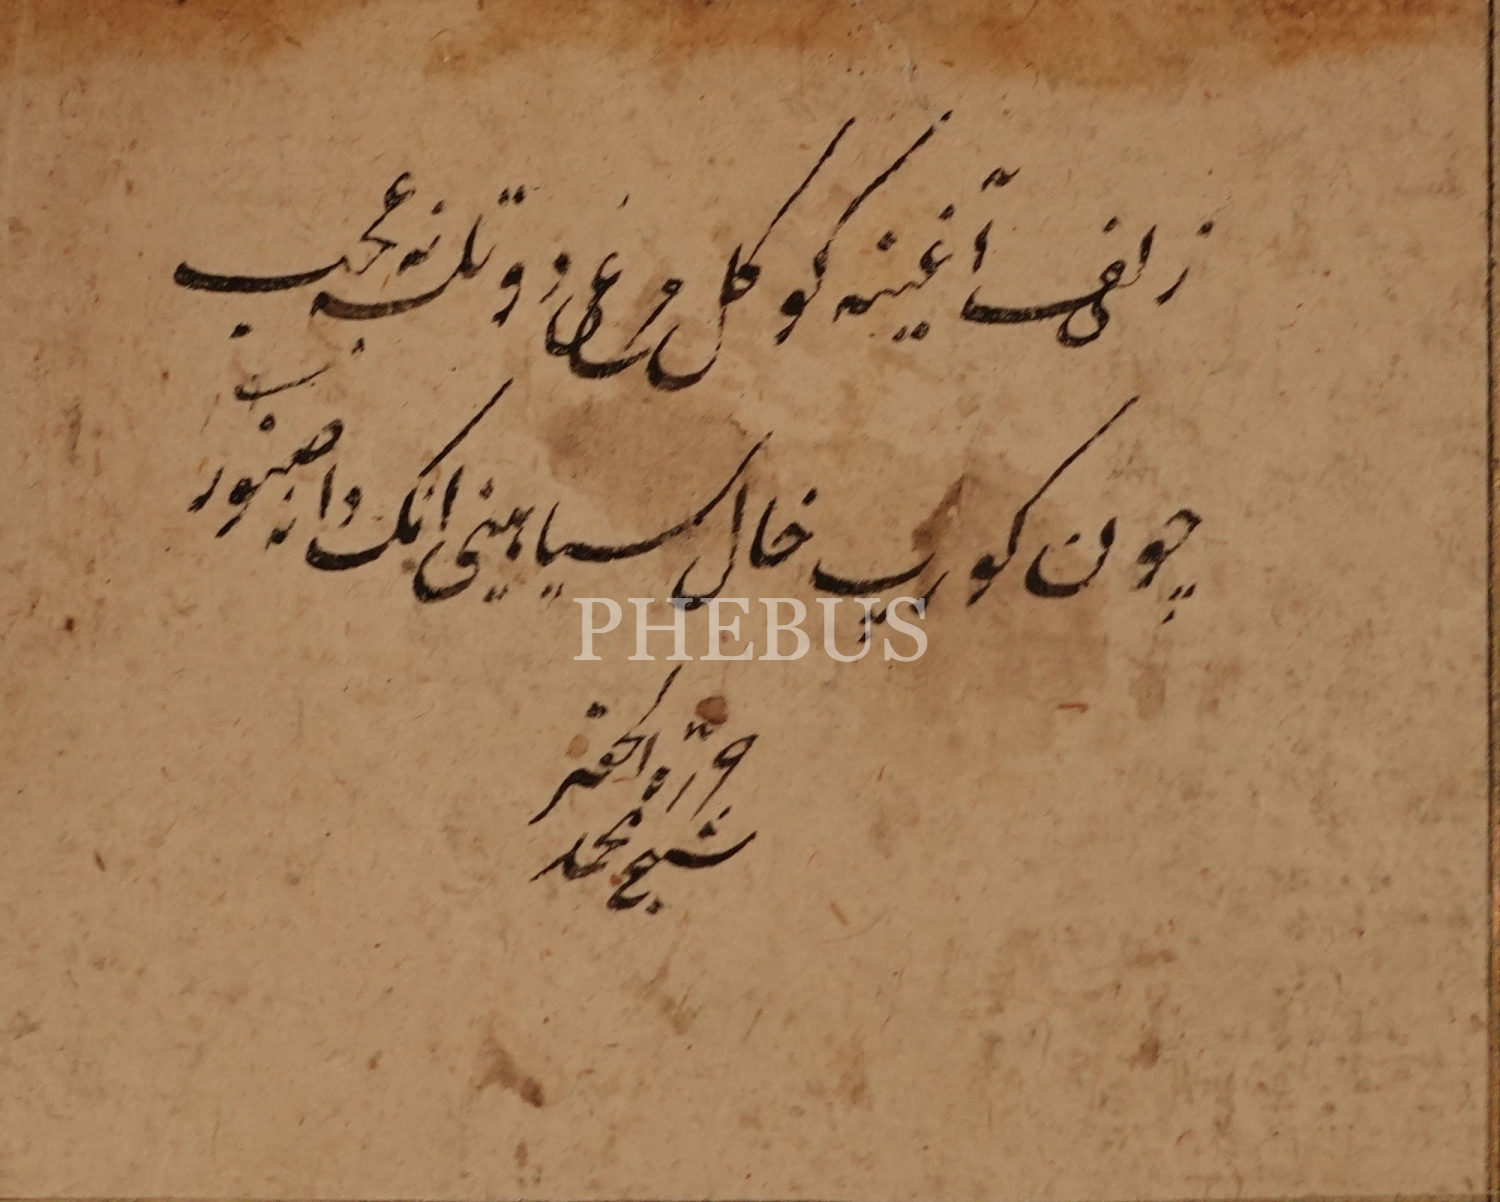 زلف آغینه کوکل مرغی دوتلسه نه عجب
چون کورپ خال سیاهینی انک دانه صنور
حرره الحقیر
شیخ محمد
PHEBUS